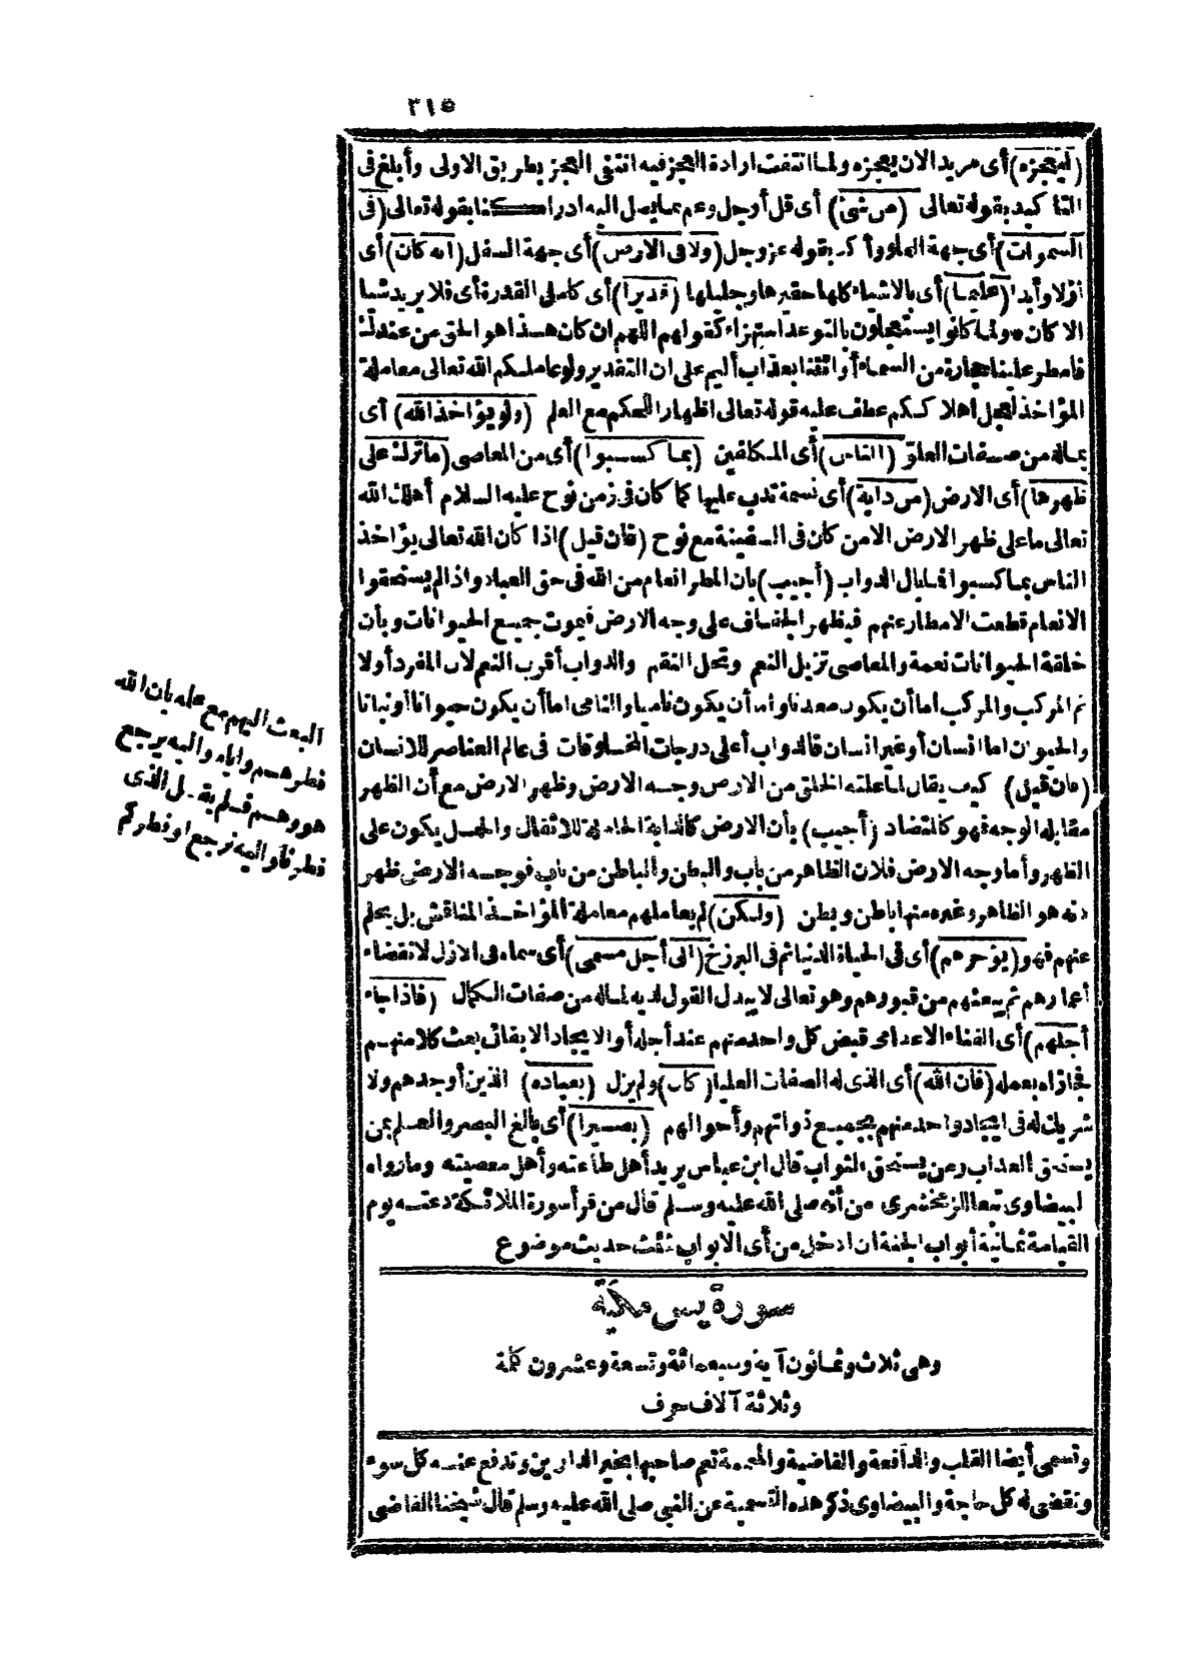 ٣١٥
(ليعجزه) أى مريد الان يعجزه ولما انتفت ارادة العجز فيه انتفى العجز بطريق الاولى وأبلغ فى
التاكيد بقوله تعالى (من شئ) أى قل أوجل وعم بما يصل اليه ادراكنا بقوله تعالى (فى
السموات) أى جهة العلو وأكد بقوله عز وجل (ولا فى الارض) أى جهة السفل (انه كان) أى
ازلا وأبدا (عليما) أى بالاشياء كلها حقيرها وجليلها (قديرا) أى كامل القدرة أى فلا يريد شيأ
الا كان ولما كانوا يستعجلون بالتوعد استهزاء كقولهم اللهم ان كان هذا هو الحق من عندك
فامطر علينا حجارة من السماء أو ائتنا بعذاب أليم على ان التقدير ولو عاملكم الله تعالى معاملة
المؤاخذ لعجل اهلاككم عطف عليه قوله تعالى اظهارا للحكم مع العلم (ولو يؤاخذ الله) أى
بماله من صفات العلو (الناس) أى المكلفين (بما كسبوا) أى من المعاصى (ماترك على
ظهرها) أى الارض (من دابة) أى نسمة تدب عليها كما كان فى زمن نوح عليه السلام أهلك الله
تعالى ما على ظهر الارض الا من كان فى السفينة مع نوح (فان قيل) اذا كان الله تعالى يؤاخذ
الناس بما كسبوا فما بال الدواب (أجيب) بان المطر انعام من الله فى حق العباد واذا لم يستحقوا
الانعام قطعت الامطار عنهم فيظهر الجفاف على وجه الارض فيموت جميع الحيوانات وبأن
خلقة الحيوانات نعمة والمعاصى تزيل النعم وتحل النقم والدواب أقرب النعم لان المفرد أولا
ثم المركب والمركب اما أن يكون معدنا واما أن يكون ناميا والنامى اما أن يكون حيوانا أو نباتا
والحيوان اما انسان أو غير انسان فالدواب أعلى درجات المخلوقات فى عالم العناصر للانسان
(فان قيل) كيف يقال لما علته الخلق من الارض وجه الارض وظهر الارض مع أن الظهر
مقابله الوجه فهو كالمتضاد (أجيب) بأن الارض كالدابة الحاملة للاثقال والحمل يكون على
الظهر وأما وجه الارض فلان الظاهر من باب والبطن والباطن من باب فوجه الارض ظهر
لانه هو الظاهر وغيره منها باطن وبطن (ولكن) لم يعاملهم معاملة المؤاخذ المناقش بل يحلم
عنهم فهو (يؤخرهم) أى فى الحياة الدنيا ثم فى البرزخ (الى أجل مسمى) أى سماه فى الازل لانقضاء
أعمارهم ثم يبعثهم من قبورهم وهو تعالى لا يبدل القول لديه لماله من صفات الكمال (فاذا جاء
أجلهم) أى الفناء الاعدامى قبض كل واحد منهم عند أجله أو الايجاد الابقائى بعث كلا منهم
فجازاه بعمله (فان الله) أى الذى له الصفات العليا (كان) ولم يزل (بعباده) الذين أوجدهم ولا
شريك له فى ايجاد واحد منهم بجميع ذواتهم وأحوالهم (بصيرا) أى بالغ البصر والعلم بمن
يستحق العذاب ومن يستحق الثواب قال ابن عباس يريد أهل طاعته وأهل معصيته ومارواه
البيضاوى تبعا للزمخشرى من أنه صلى الله عليه وسلم قال من قرأ سورة الملائكة دعته يوم
القيامة ثمانية أبواب الجنة ان ادخل من أى الابواب شئت حديث موضوع
البعث اليهم مع علمه بان الله
فطرهم واياه واليه يرجع
هو وهم فلم يقل الذى
فطرنا واليه نرجع او فطركم
سورة يس مكية
وهى ثلاث وثمانون آية وسبعمائة وتسعة وعشرون كلمة
وثلاثة آلاف حرف
وتسمى أيضا القلب والدافعة والقاضية والمعمة تعم صاحبها بخير الدارين وتدفع عنه كل سوء
وتقضى له كل حاجة والبيضاوى ذكر هذه التسمية عن النبى صلى الله عليه وسلم قال شيخنا القاضى